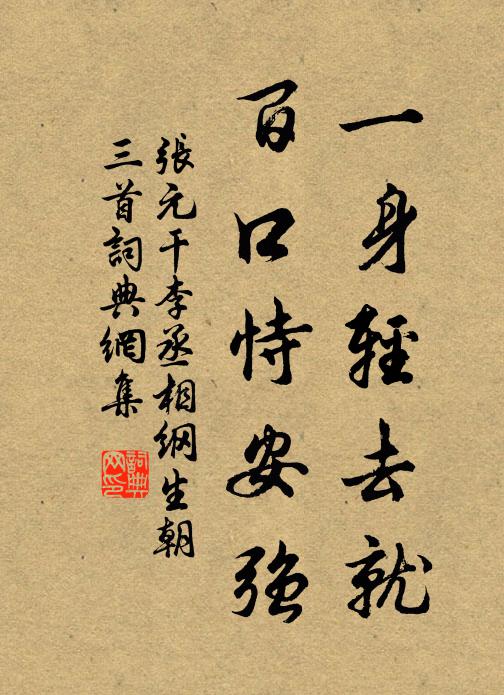 一身輕去就
百口恃安強
張元干李丞相纲生朝
三首詞典網集
詞典网印